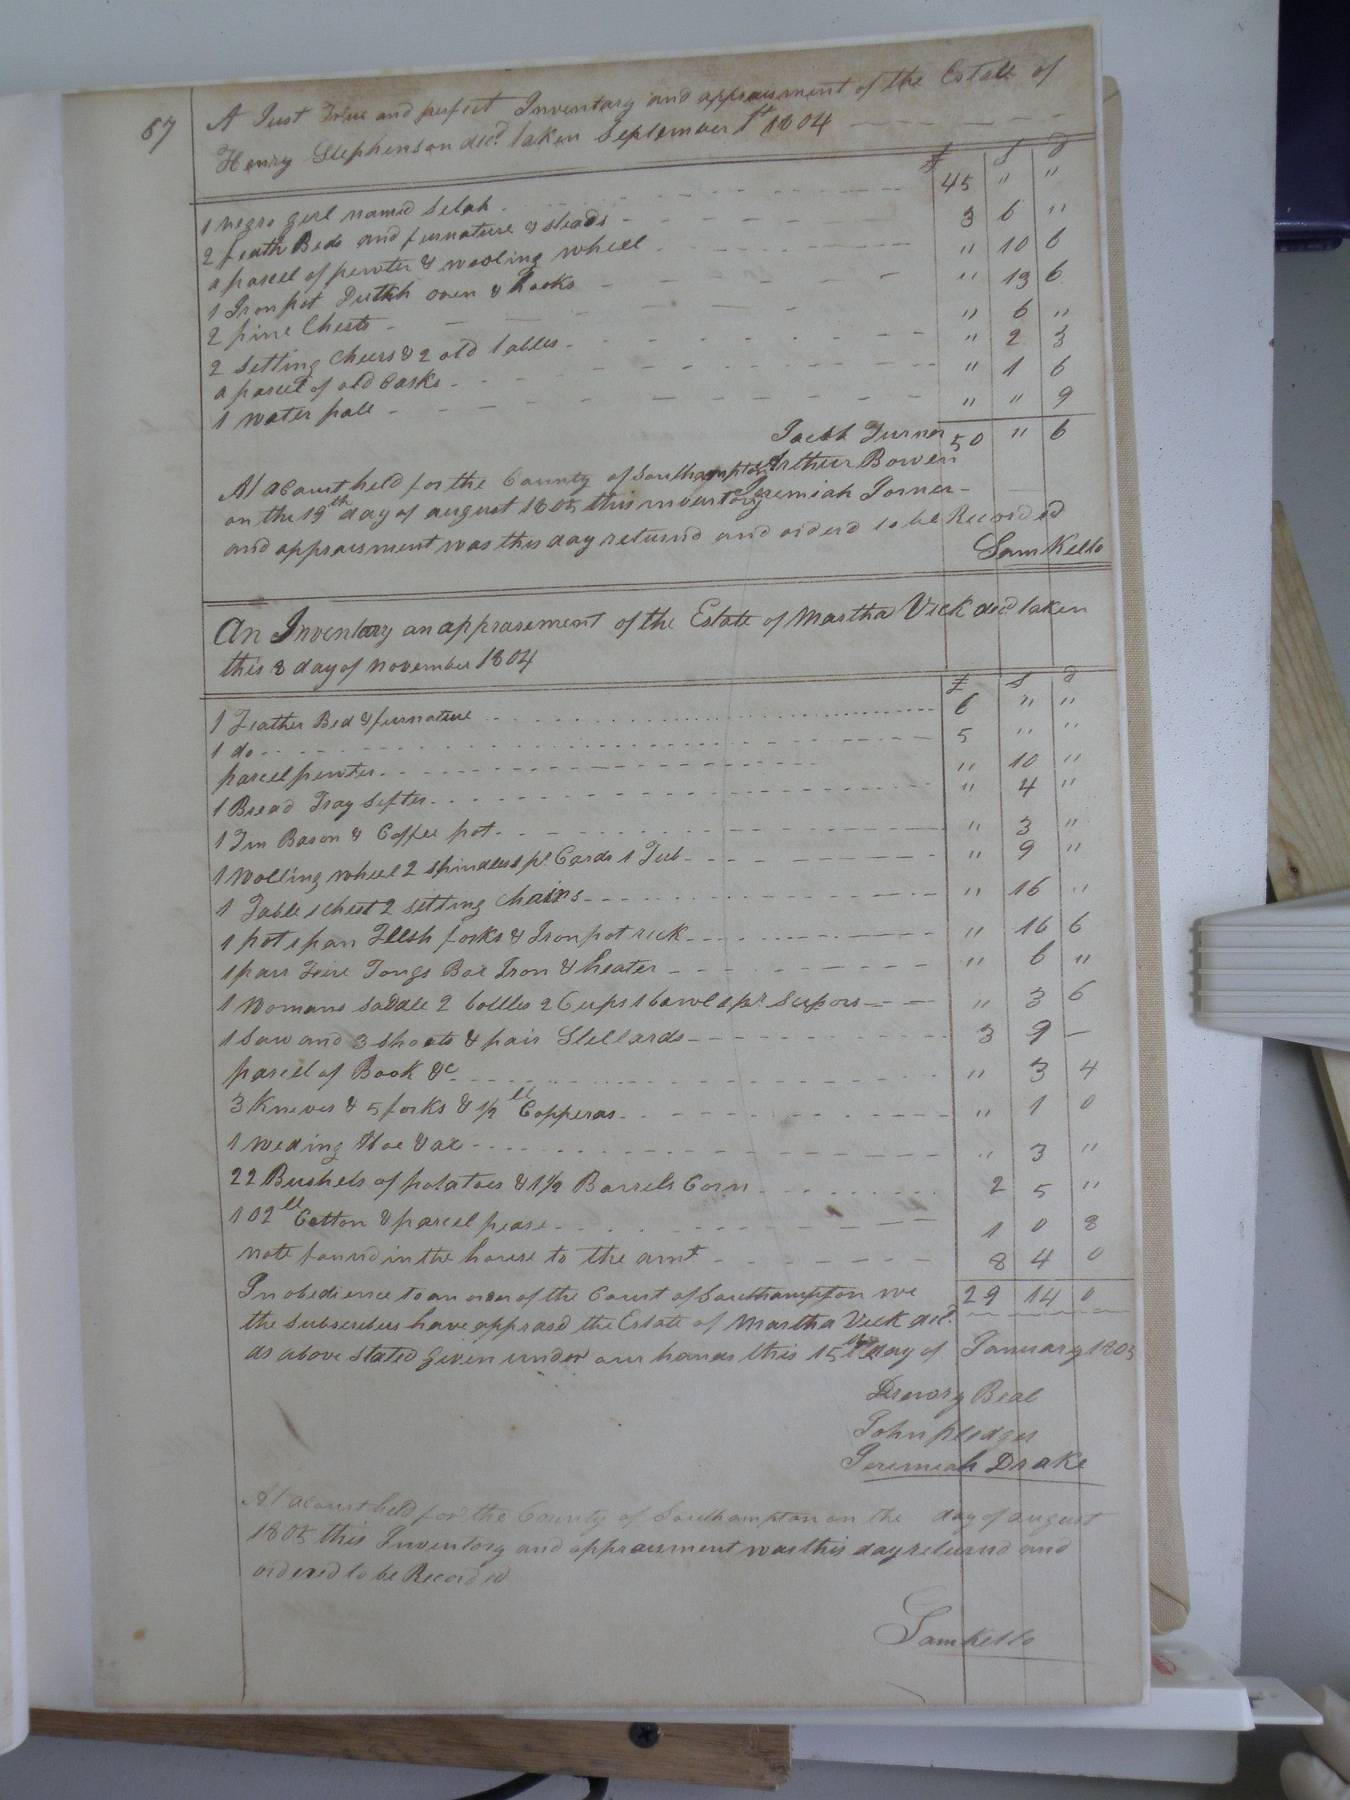 87
A Just True and perfect Inventary and appraisment of the Estate of
Henry Stephenson decd. taken September 1st 1804
£ S d
1 negro girl named Selah 45 " "
2 feath Beds and furnature & steads 3 6 "
a parcel of pewter & wooling wheel " 10 6
1 Iron pot Dutch oven & hooks " 13 6
2 pine Chests " 6 "
2 Setting Cheers & 2 old tables " 2 3
a parcel of old Casks " 1 6
1 water pale " " 9
Jacob Turner 50 " 6
Arthur Bowen
At a Court held for the County of Southampton
Jeremiah Torner
on the 19th day of august 1805 this inventory
and appraisment was this day returnd and orderd to be Recorded
Sam Kello
An Inventory an apprasement of the Estate of Martha Vick decd taken
this 8 day of november 1804
£ S d
1 Feather Bed & furnature 6 " "
1 do 5 " "
parcel pewter " 10 "
1 Bread Tray Sifter " 4 "
1 Tin Bason & Coffee pot " 3 "
1 Wolling wheel 2 spindles 1 pr Cards 1 Tub " 9 "
1 Table 1 chest 2 Setting Chairs " 16 "
1 pot 1 pan Flesh forks & Iron pot rick " 16 6
1 parr Fire Tongs Box Iron & heater " 6 "
1 Womans Saddle 2 bottles 2 Cups 1 bowl 1 pr. " 3 6
1 Sow and 3 Shoats & pair Stellards 3 9 –
parcel of Book &c " 3 4
3 Kneves & 5 forks & 1/2 lb Copperas " 1 0
1 Weding Hoe & ax " 3 "
22 Bushels of potatoes & 1 1/2 Barrels Corn 2 5 "
102 lb Cotton & parcel pease 1 0 8
note found in the house to the amt 8 4 0
In obedience to an order of the Court of Southampton we 29 14 0
the Subscribers have apprasd the Estate of Martha Vick decd.
as above Stated given under our hands this 15th day of January 1805
Drewry Beal
John pledger
Jeremiah Drake
At a Court held for the County of Southampton on the day of august
1805 this Inventory and appraisment was this day returnd and
ordered to be Recorded
Sam Kello